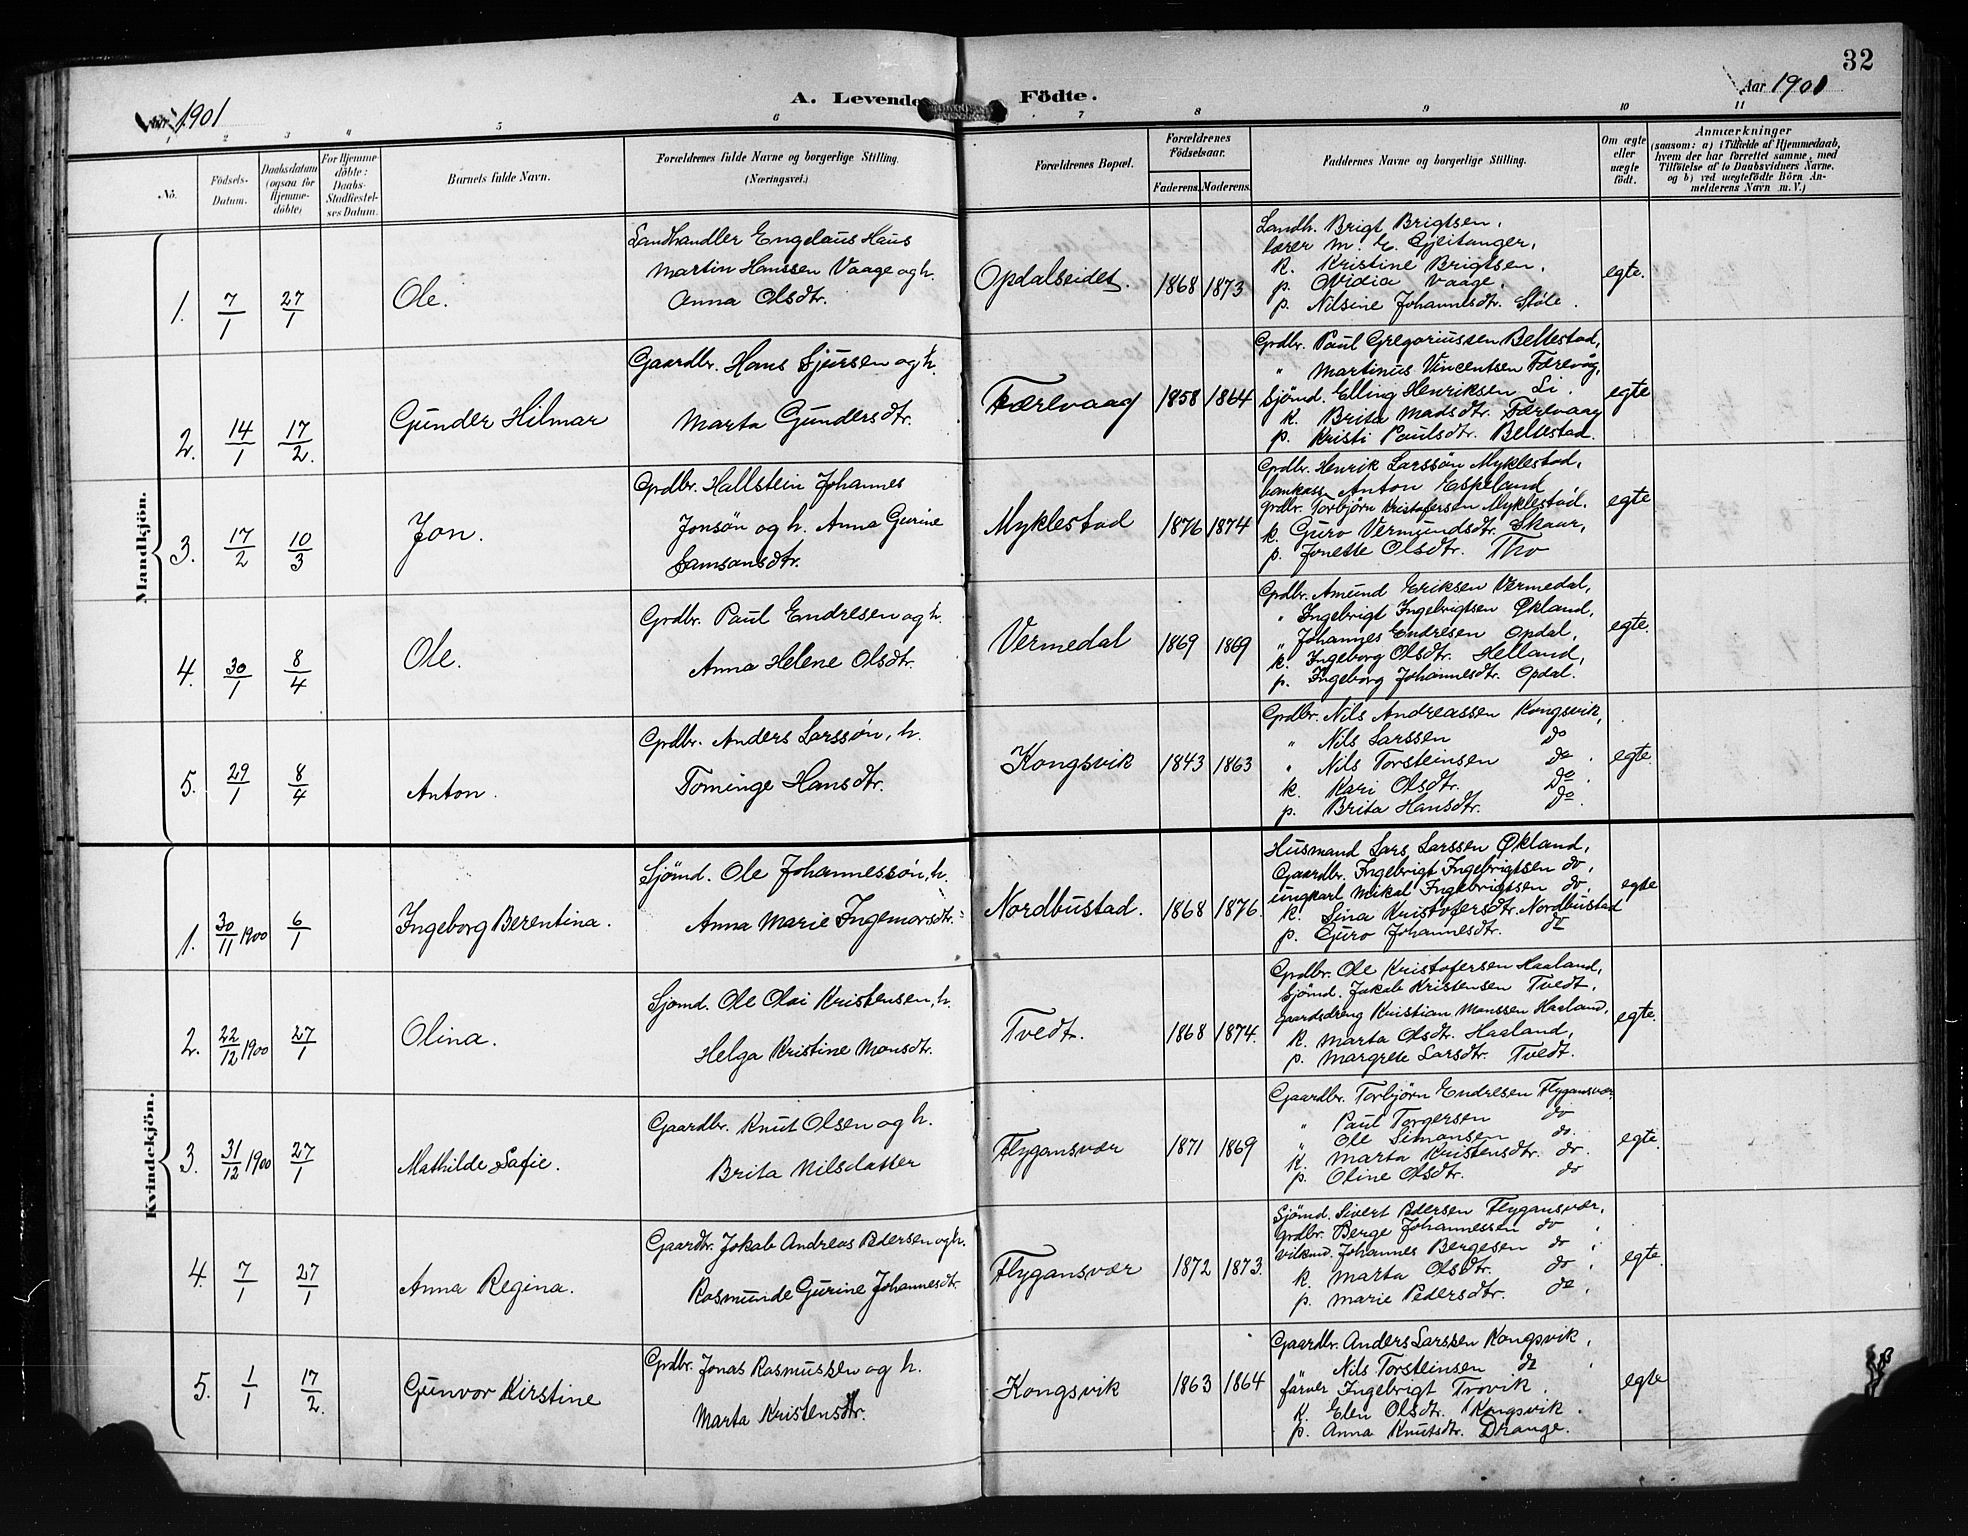 32
Aar 1901
A. Levende Födte.
Aar 1901
1 2 3 4 5 6 7 8 9 10 11
No.
Födsels-Datum.
Daabsdatum (ogsaa for Hjemme-döbte)
For Hjemme-döbte: Daabs-Stadfæstel-ses Datum.
Barnets fulde Navn.
Forældrenes fulde Navne og borgerlige Stilling. (Næringsvei.)
Forældrenes Bopæl.
Forældrenes Födselsaar.
Faderens.
Moderens.
Faddernes Navne og borgerlige Stilling.
Om ægte eller uægte födt.
Anmærkninger
(saasom: a) i Tilfælde af Hjemmedaab, hvem der har forrettet samme, med Tilföielse af to Daabsvidners Navne. og b) ved uægtefödte Börn An-melderens Navn m. V.)
Mandkjön.
1. 7/1 27/1 Ole.
Landhandler Engelaus Haus
Martin Hanssen Vaage og h.
Anna Olsdtr.
Opdalseidet. 1868 1873
Landh. Brigt Brigtsen,
lærer M. E. Gjeitanger,
k. Kristine Brigtsen,
p. Ovidia Vaage,
p. Nilsine Johannesdtr. Støle.
egte.
2. 14/1 17/2. Gunder Hilmar
Gaardbr. Hans Sjursen og h.
Marta Gundersdtr.
Færevaag 1858 1864
Grdbr. Paul Gregoriussen Beltestad,
" Martinus Vincentsen Færevåg,
Sjömd. Elling Henriksen Li.
k. Brita Madsdtr. Færevaag
p. Kristi Paulsdtr. Beltestad.
egte
3. 17/2 10/3 Jon.
Grdbr. Hallstein Johannes
Jonsön og h. Anna Gurine
Samsonsdtr.
Myklestad 1876 1874
Grdbr. Henrik Larssøn Myklestad,
bankkass. Anton Espeland
grdbr. Torbjörn Kristofersen Myklestad.
k. Guro Vermundsdtr. Skaar,
p. Jonette Olsdtr. Tho
egte
4. 30/1 8/4 Ole.
Grdbr. Paul Endresen og h.
Anna Helene Olsdtr.
Vermedal 1869 1869
Grdbr. Amund Eriksen Vermedal,
" Ingebrigt Ingebrigtsen Økland,
" Johannes Endresen Opdal,
k. Ingeborg Olsdtr. Helland,
p. Ingeborg Johannesdtr. Opdal.
egte.
5. 29/1 8/4 Anton.
Grdbr. Anders Larssön, h.
Tominge Hansdtr.
Kongsvik 1843 1863
Grdbr. Nils Andreassen Kongsvik,
" Nils Larssen do
" Nils Torsteinsen do.
k. Kari Olsdtr. do.
p. Brita Hansdtr. do.
egte.
Kvindekjön.
1. 30/11 1900 6/1 Ingeborg Berentina.
Sjömd. Ole Johannessön, h.
Anna Marie Ingemorsdtr.
Nordbustad. 1868 1876.
Husmand Lars Larssen Økland,
Gaardbr. Ingebrigt Ingebrigtsen do,
ungkarl Mikal Ingebrigtsen do.
k. Sina Kristofersdtr. Nordbustad
p. Guro Johannesdtr. do
egte
2. 22/12 1900 27/1 Olina.
Sjömd. Ole Olai Kristensen, h.
Helga Kristine Monsdtr.
Tvedt. 1868 1874.
Grdbr. Ole Kristofersen Haaland,
Sjömd. Jakob Kristensen Tvedt,
gaardsdreng Kristian Monssen Haaland,
k. Marta Olsdtr. Haaland,
p. Margrete Larsdtr. Tvedt.
egte.
3. 31/12 1900 27/1 Mathilde Sofie.
Gaardbr. Knut Olsen og h.
Brita Nilsdatter
Flygansvær 1871 1869
Gaardbr. Torbjörn Endresen Flygansvær
" Paul Torgersen do
" Ole Simonsen do.
k. Marta Kristensdtr. do.
p. Oline Olsdtr. do
egte.
4. 7/1 27/1 Anna Regina.
Gaardbr. Jakob Andreas Pedersen og h.
Rasmunde Gurine Johannesdtr
Flygansvær 1872 1873.
Sjömd. Sivert Pedersen Flygansvær,
grdbr. Berge Johannessen do,
Johannes Bergesen do,
k. Marta Olsdtr. do,
p. Marie Pedersdtr. do,
egte.
5. 1/1 17/2. Gunvor Kirstine
Grdbr. Jonas Rasmussen og h.
Marta Kristensdtr.
Kongsvik 1863 1864
Gaardbr. Anders Larssen Kongsvik,
" Nils Torsteinsen do
farver Ingebrigt Trovik.
k. Elen Olsdtr. Kongsvik.
p. Anna Knutsdtr. Drange.
egte